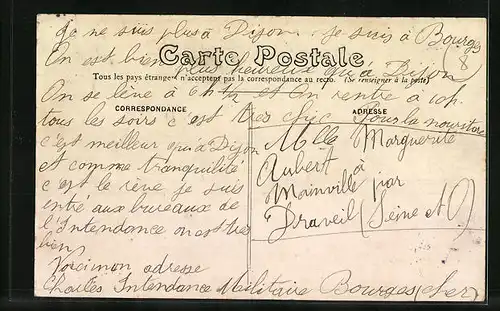 Je ne suis plus à Dijon. Je suis à Bourges
On est bien plus heureux qu'à Dijon
8
Carte Postale
Tous les pays étrangers n'acceptent pas la correspondance au recto. (Se renseigner à la poste)
On se lève à 6h ½ et On rentre à 10h
CORRESPONDANCE
tous les soirs c'est très chic Pour la nourriture
c'est meilleur qu'a Dijon
et comme tranquilité
c'est le rêve je suis
entré aux bureaux de
l'Intendance on est très
bien
Voici mon adresse
Charles Intendance Militaire Bourges (cher)
ADRESSE
Mlle Marguerite
Aubert à
Mainville par
Draveil (Seine et O)